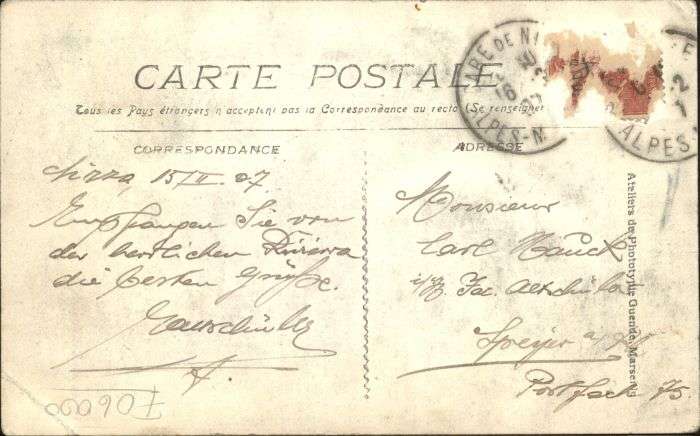 CARTE POSTALE
Tous les Pays étrangers n'acceptent pas la Correspondance au recto (Se renseigner
CORRESPONDANCE
ADRESSE
GARE DE NI
ALPES-M
E
ALPES
Nizza, 15/II 07
Empfangen Sie von
der herrlichen Riviera
die besten Grüße.
Monsieur
Carl
Fac.
Speyer a/
Postfach 75.
Ateliers de Phototypie Guende, Marseille